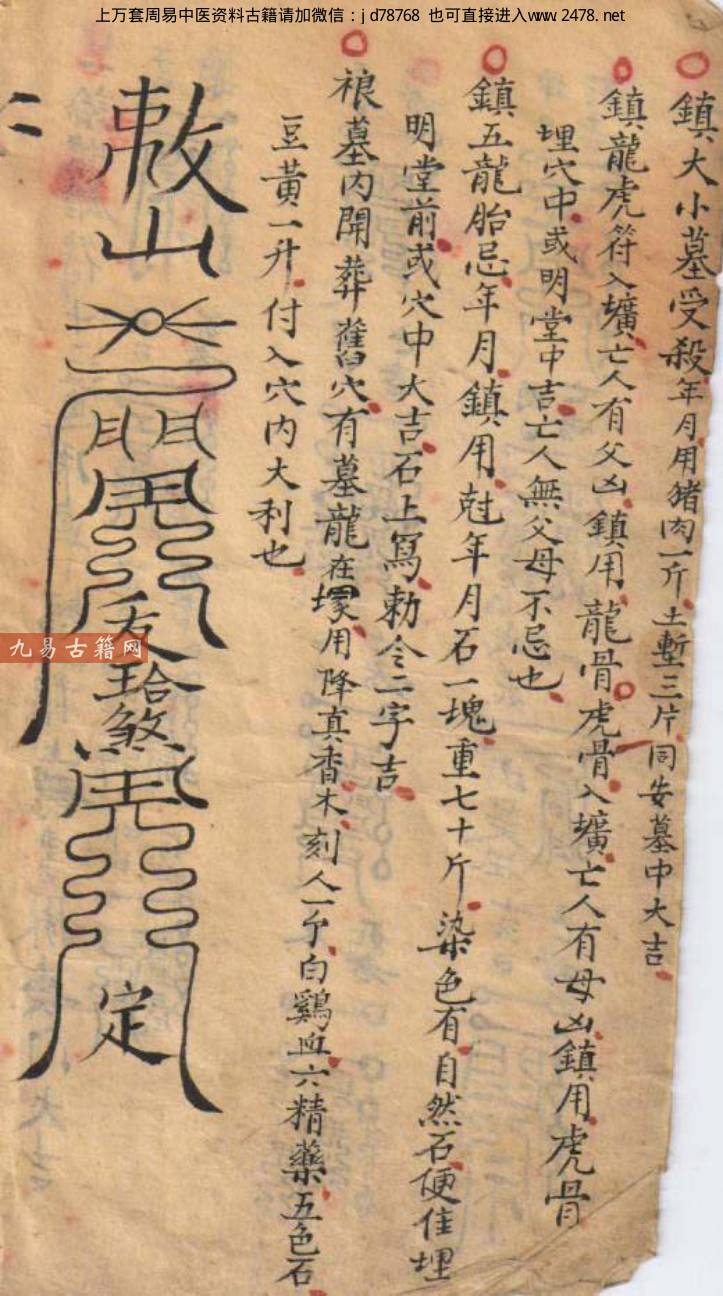 上万套周易中医资料古籍请加微信：jd78768 也可直接进入www.2478.net
鎮大小墓受殺年月用猪肉一斤土墼三片同安墓中大吉
鎮龍虎符入壙亡人有父凶鎮用龍骨虎骨入壙亡人有母凶鎮用虎骨
埋穴中或明堂中吉亡人無父母不忌也
鎮五龍胎忌年月鎮用尅年月石一塊重七十斤染色有自然石便佳埋
明堂前或穴中大吉石上寫勅令二字吉
墓內開葬舊穴有墓龍在塚用降真香木刻人一个白鷄血六精藥五色石
豆黃一升付入穴內大利也
敕山
煞
定
九易古籍网